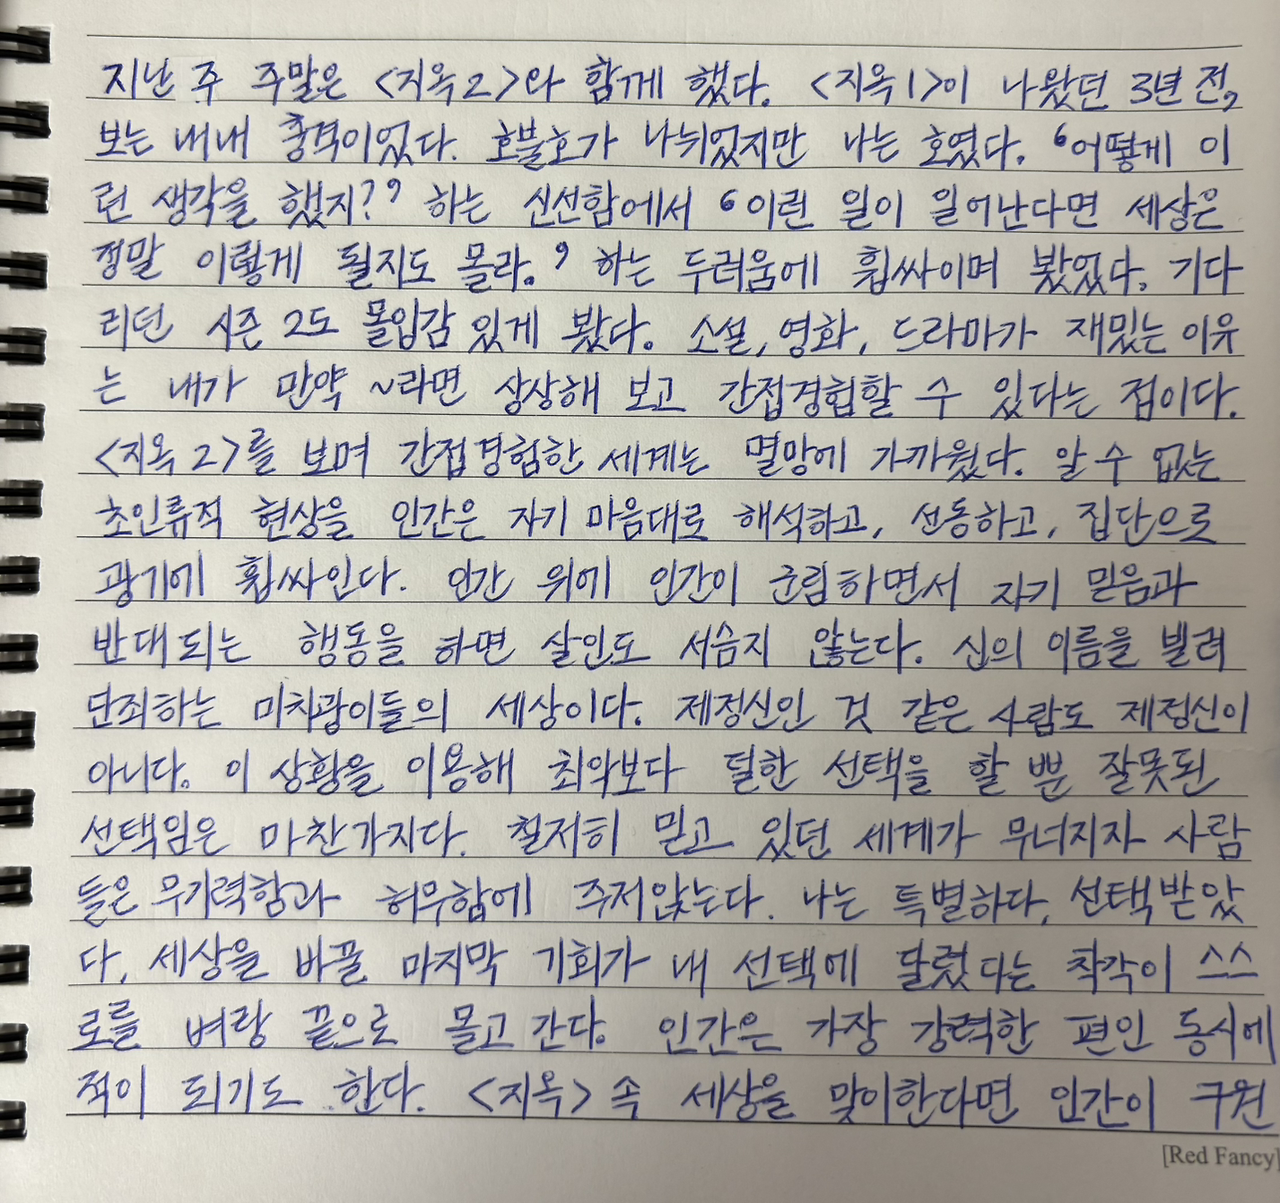 지난 주 주말은 <지옥2>와 함께 했다. <지옥1>이 나왔던 3년 전,
보는 내내 충격이었다. 호불호가 나뉘었지만 나는 호였다. '어떻게 이
런 생각을 했지?' 하는 신선함에서 '이런 일이 일어난다면 세상은
정말 이렇게 될지도 몰라.' 하는 두려움에 휩싸이며 봤었다. 기다
리던 시즌2도 몰입감 있게 봤다. 소설, 영화, 드라마가 재밌는 이유
는 내가 만약 ~라면 상상해 보고 간접경험할 수 있다는 점이다.
<지옥2>를 보며 간접경험한 세계는 멸망에 가까웠다. 알 수 없는
초인류적 현상을 인간은 자기 마음대로 해석하고, 선동하고, 집단으로
광기에 휩싸인다. 인간 위에 인간이 군림하면서 자기 믿음과
반대되는 행동을 하면 살인도 서슴지 않는다. 신의 이름을 빌려
단죄하는 미치광이들의 세상이다. 제정신인 것 같은 사람도 제정신이
아니다. 이 상황을 이용해 최악보다 덜한 선택을 할 뿐 잘못된
선택임은 마찬가지다. 철저히 믿고 있던 세계가 무너지자 사람
들은 무기력함과 허무함에 주저앉는다. 나는 특별하다, 선택받았
다, 세상을 바꿀 마지막 기회가 내 선택에 달렸다는 착각이 스스
로를 벼랑 끝으로 몰고 간다. 인간은 가장 강력한 편인 동시에
적이 되기도 한다. <지옥> 속 세상을 맞이한다면 인간이 구원
[Red Fancy]